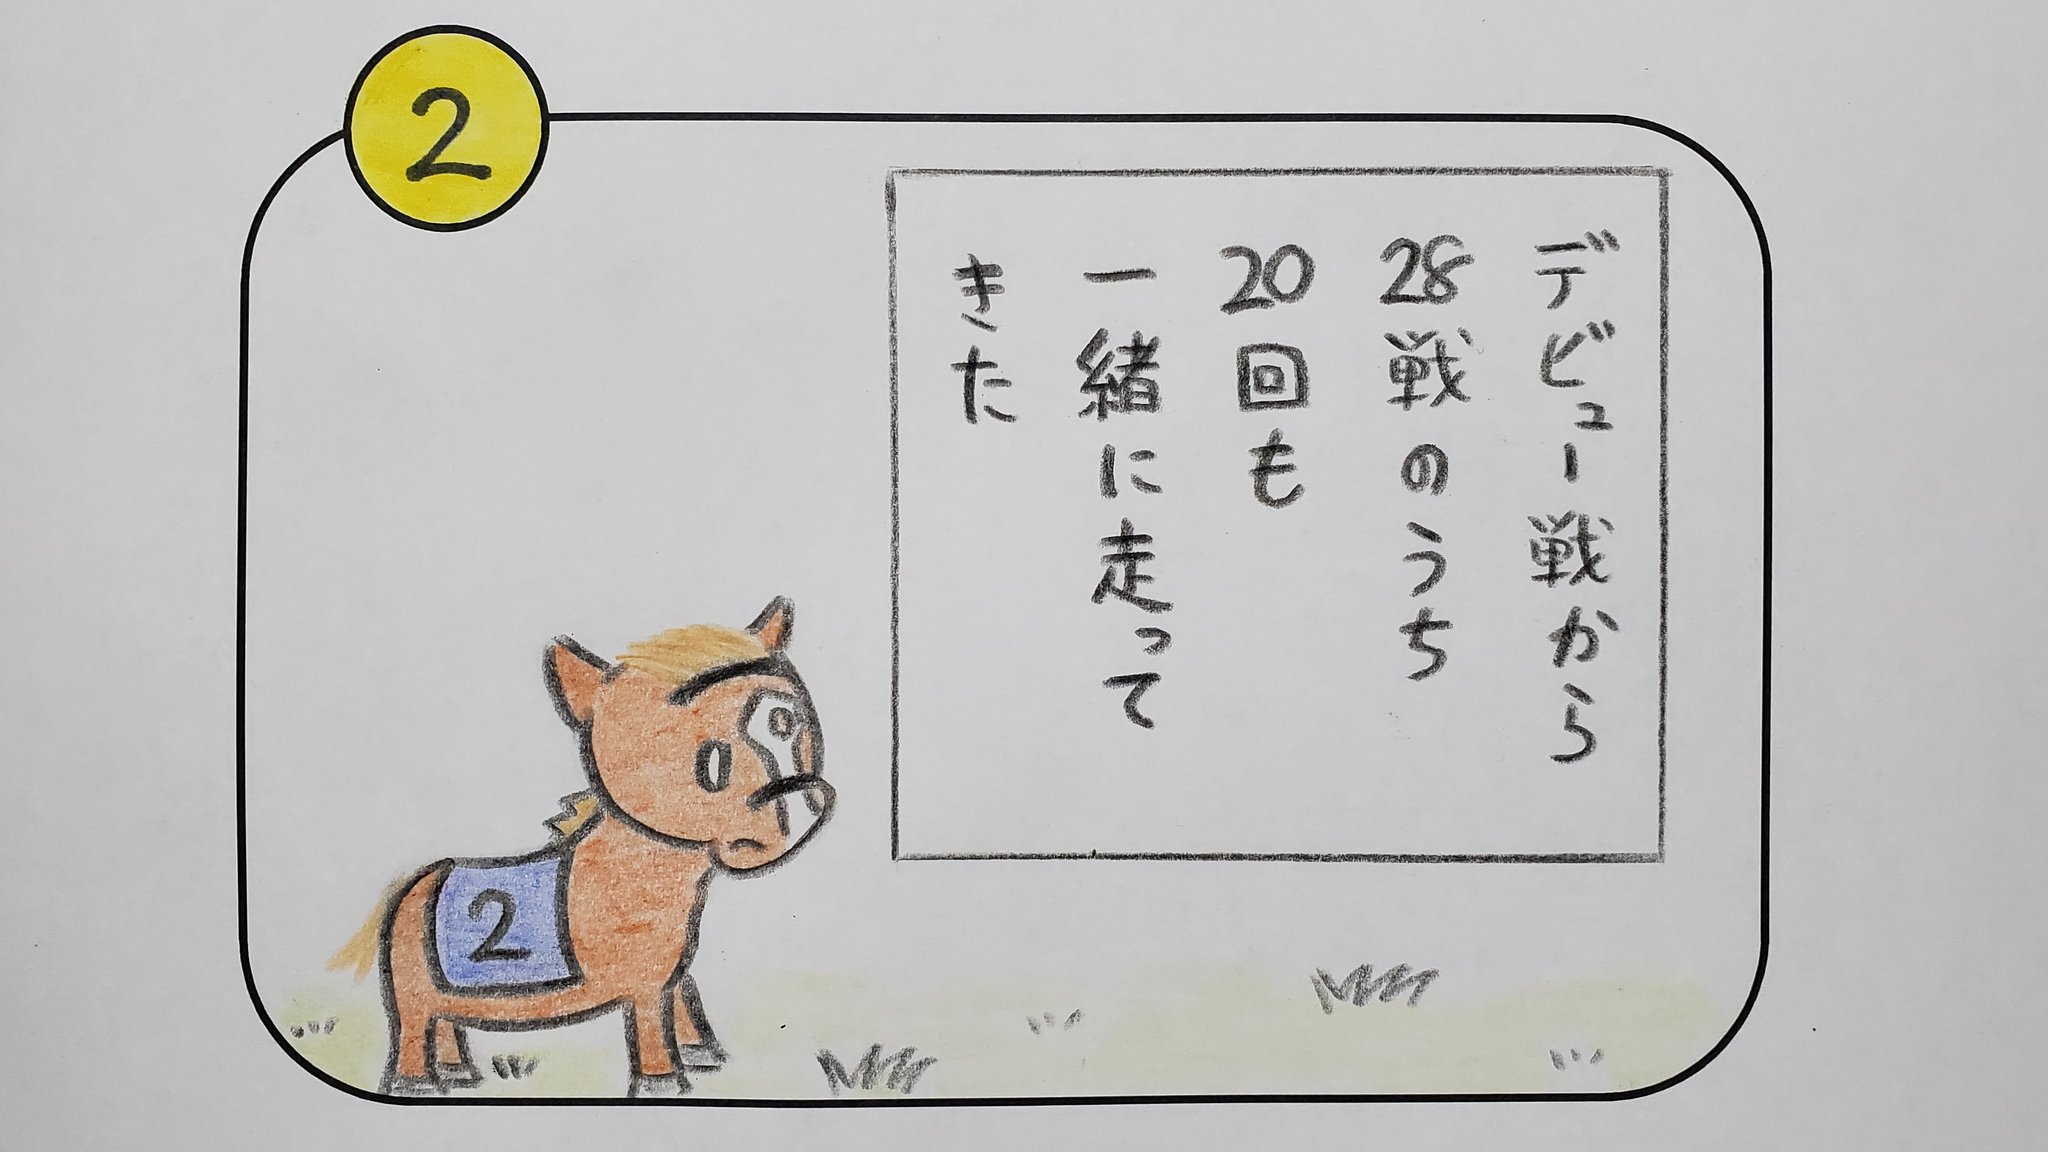 2
デビュー戦から
28戦のうち
20回も
一緒に走って
きた
2